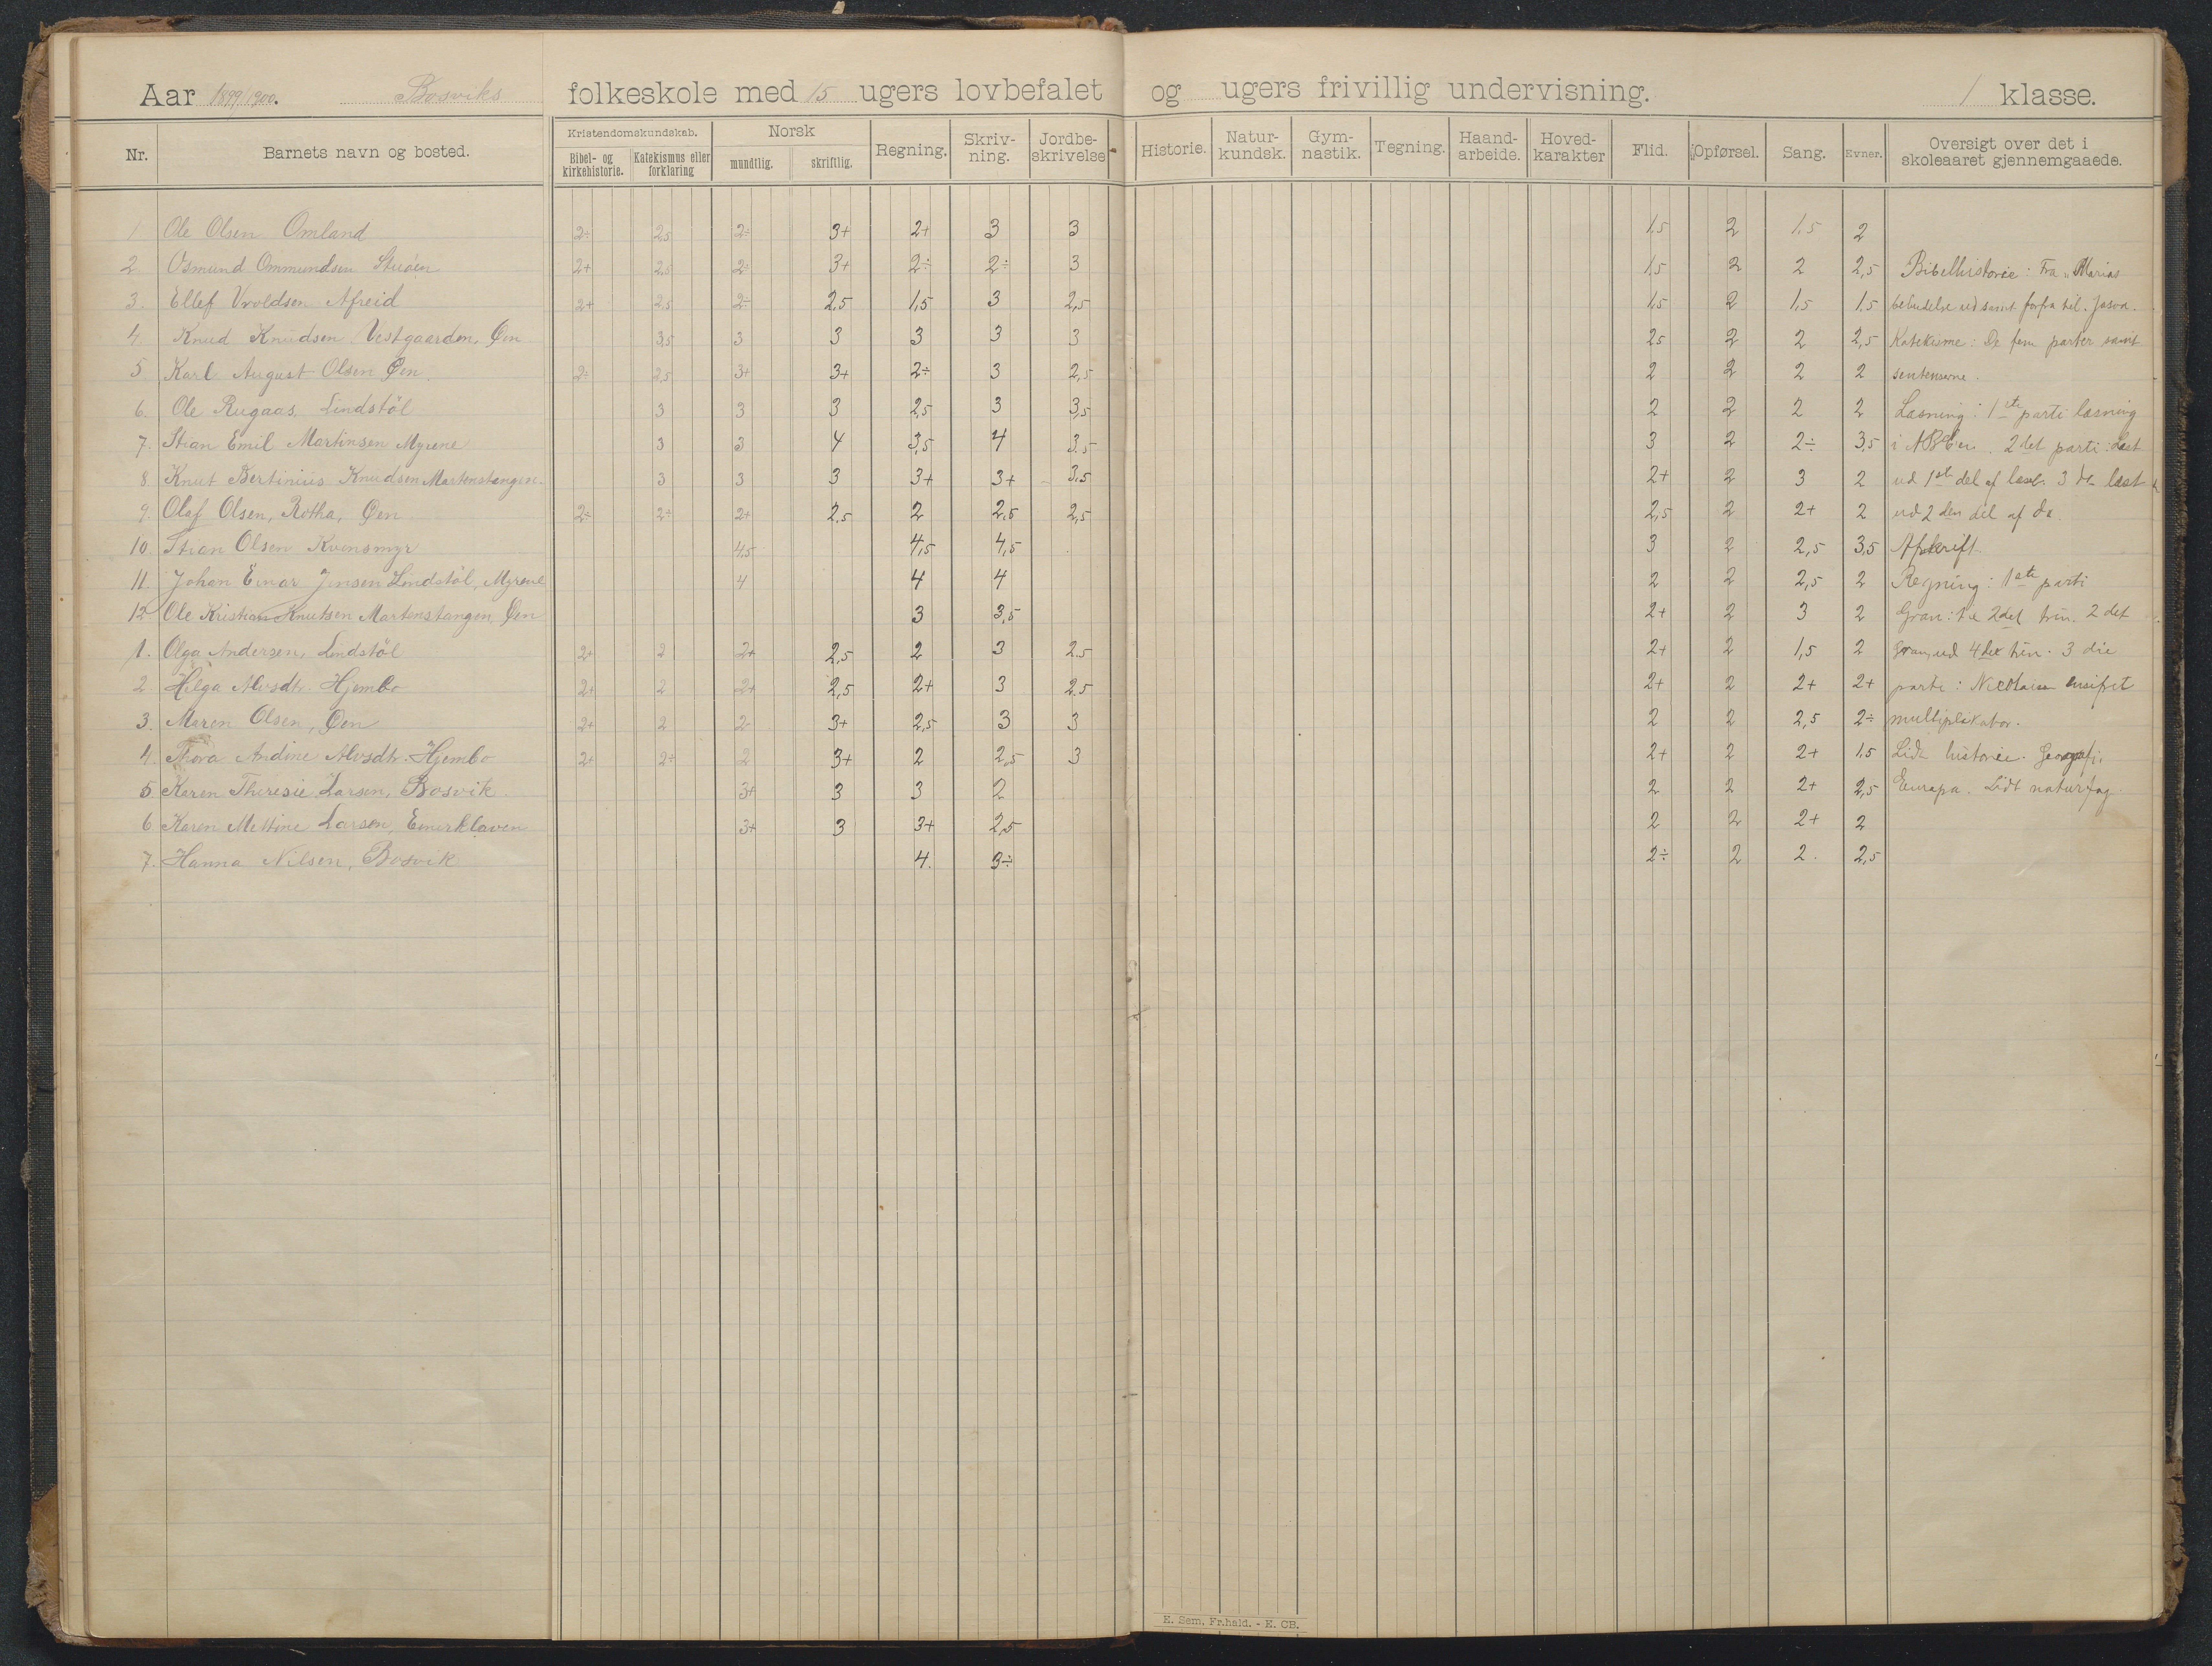 Aar 1899/1900. Bosviks folkeskole med 15 ugers lovbefalet og ugers frivillig undervisning. 1 klasse.
Nr. Barnets navn og bosted. Kristendomskundskab. Norsk Regning. Skriv-ning. Jordbe-skrivelse Historie. Natur-kundsk. Gym-nastik. Tegning. Haand-arbeide. Hoved-karakter Flid. Opførsel. Sang. Evner. Oversigt over det i skoleaaret gjennemgaaede.
Bibel- og kirkehistorie. Katekismus eller forklaring mundtlig. skriftlig.
1 Ole Olsen Omland 2÷ 2,5 2÷ 3+ 2+ 3 3 1,5 2 1,5 2
2. Osmund Ommundsen 2+ 2,5 2÷ 3+ 2÷ 2÷ 3 1,5 2 2 2,5 Bibelhistorie: Fra "Marias
3. Ellef Vroldsen Afreid 2+ 2,5 2÷ 2,5 1,5 3 2,5 1,5 2 1,5 1,5 bebudelse ud samt forfra til
4. Knud Knudsen Vestgaarden, Øen 3,5 3 3 3 3 3 2,5 2 2 2,5 Katekisme: De fem parter samt
5 Karl August Olsen Øen. 2÷ 2,5 3+ 3+ 2÷ 3 2,5 2 2 2 2 sentenserne.
6. Ole Rugaas, Lindstöl 3 3 3 2,5 3 3,5 2 2 2 2 Læsning: 1ste parti læsning
7. Stian Emil Martinsen Myrene 3 3 4 3,5 4 3.5 3 2 2÷ 3,5 i ABC en. 2det parti: Læst
8. Knut Bertinius Knudsen Martenstangen. 3 3 3 3+ 3+ 3.5 2+ 2 3 2 ud 1ste del af læseb. 3die læst
9. Olaf Olsen, Rotha, Øen 2÷ 2÷ 2+ 2,5 2 2.5 2,5 2,5 2 2+ 2 ud 2den del af do.
10 Stian Olsen Kvensmyr 4,5 4,5 4,5 3 2 2,5 3,5 Afskrift.
11. Johan Einar Jensen Lindstöl, Myrene 4 4 4 2 2 2,5 2 Regning: 1ste parti
12 Ole Kristian Knutsen Martenstangen, Øen 3 3,5 2+ 2 3 2 Gran: 2det trin. 2det
1. Olga Andersen, Lindstöl 2+ 2 2+ 2,5 2 3 2.5 2+ 2 1,5 2 Gran, ud 4det trin. 3die
2 Helga Alvsdtr. Hjembo 2+ 2 2+ 2,5 2+ 3 2.5 2+ 2 2+ 2+ parti: Nicolaisen ensifret
3. Maren Olsen, Øen 2+ 2 2÷ 3+ 2,5 3 3 2 2 2,5 2÷ multiplikator.
4. Thora Andine Alvsdtr. Hjembo 2+ 2÷ 2 3+ 2 2,5 3 2+ 2 2+ 1,5 Lidt historie. Geografi,
5 Karen Theresie Larsen, Bosvik 3+ 3 3 2 2 2 2+ 2,5 Europa. Lidt naturfag.
6 Karen Mettine Larsen, Einerkløven 3+ 3 3+ 2,5 2 2 2+ 2
7. Hanna Nilsen, Bosvik 4. 3÷ 2÷ 2 2. 2,5
E. Sem, Fr.hald. - E. CB.